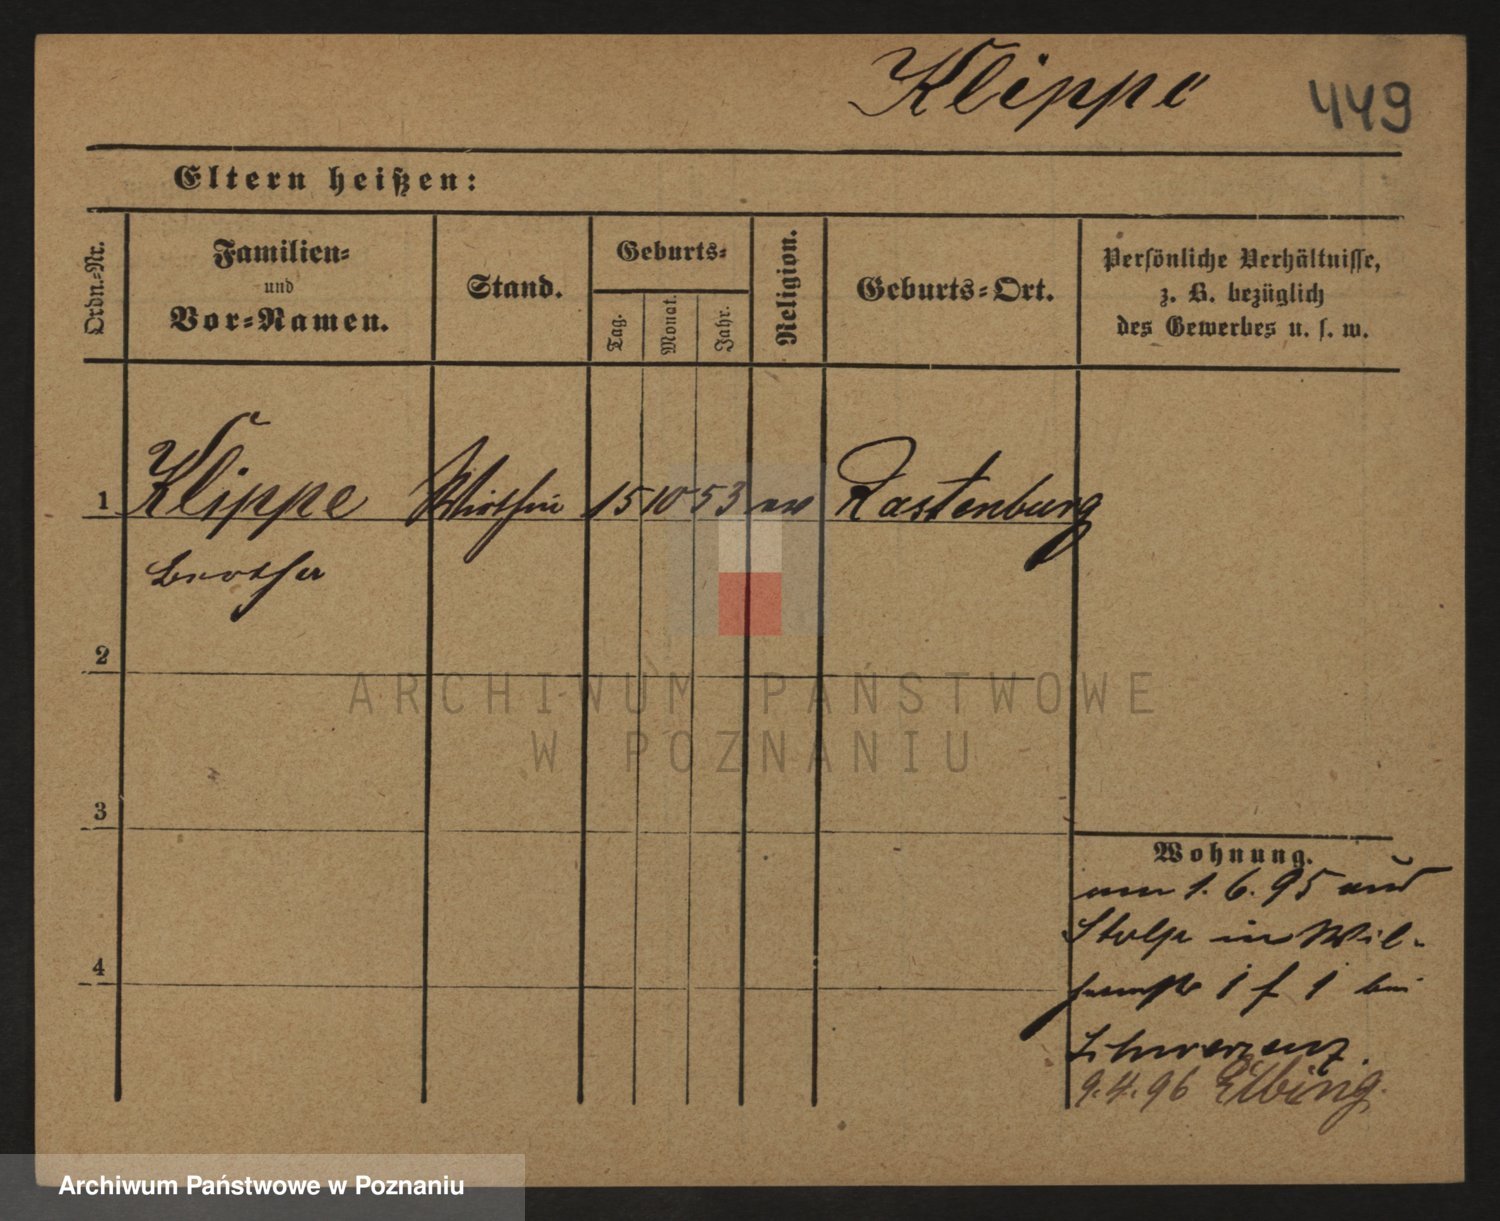 Klippe 449
Eltern heißen:
Ordn.-Nr.
Familien-
und
Vor-Namen.
Stand.
Geburts-
Tag.
Monat.
Jahr.
Religion.
Geburts-Ort.
Persönliche Verhältnisse,
z. B. bezüglich
des Gewerbes u. s. w.
1 Klippe Wirthin 15 10 53 ev Rastenburg
2
ARCHIWUM PAŃSTWOWE
W POZNANIU
3
Wohnung.
am 1. 6. 95 aus
Stolp in Wil-
1 f 1 bei
4
9.4.96 Elbing.
Archiwum Państwowe w Poznaniu